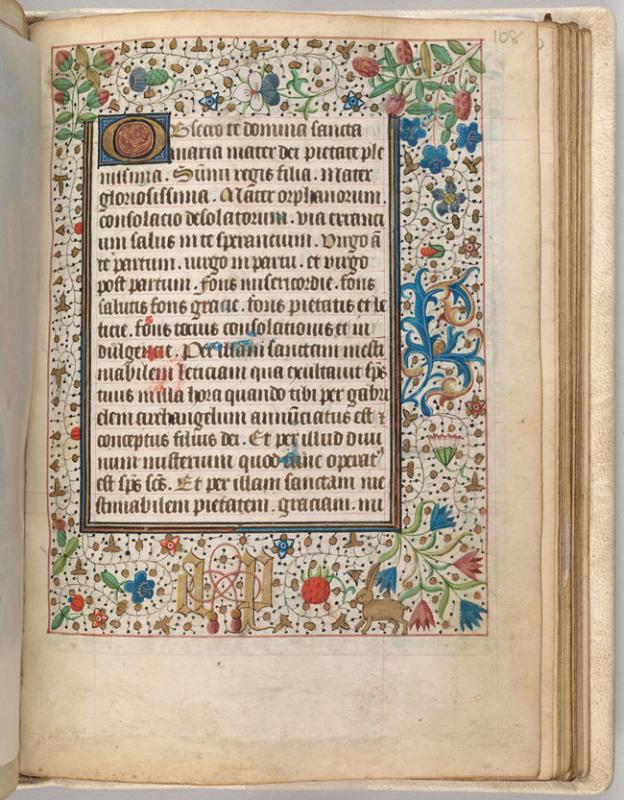 108
Obsecro te domina sancta
maria mater dei pietate ple
nissima. Sūmi regis filia. Mater
gloriosissima. Mater orphanorum.
consolacio desolatorum. via erranci
um salus in te sperancium. Virgo ā
te partum. virgo in partu. et virgo
post partum. fons misericordie. fons
salutis fons gracie. fons pietatis et le
ticie. fons tocius consolationis et in
dulgencie. Per illam sanctam inesti
mabilem leticiam qua exultauit sp̄s
tuus in illa hora quando tibi per gabri
elem archangelum annūciatus est ⁊
conceptus filius dei. Et per illud diui
num misterium quod tunc operatꝰ
est sp̄s sc̄s. Et per illam sanctam ine
stimabilem pietatem. graciam. mi